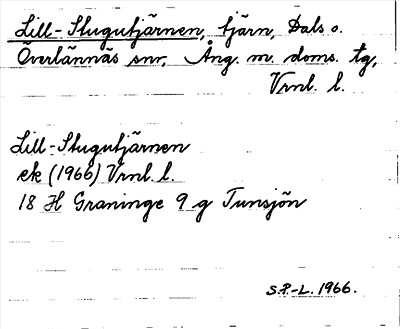 Lill-Stugutjärnen, tjärn, Dals o.
Överlännäs snr, Ång. m. doms. tg,
Vrnl. l.
Lill-Stugutjärnen
ek (1966) Vrnl. l.
18 H Graninge 9 g Tunsjön
S.P.-L. 1966.